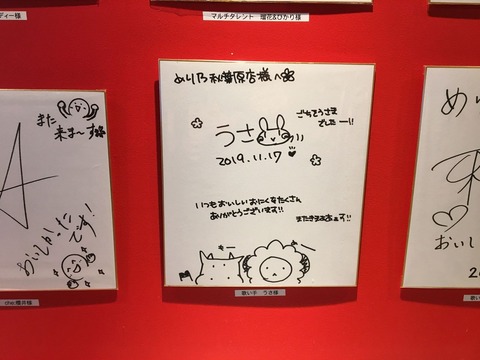 ディー様
マルチタレント 瑠花&ひかり様
また
来ま〜す
おいしかったです!
chei.櫻井様
めり乃 秋葉原店様へ
うさ
2019.11.17
ごちそうさま
でしたー!!
いつもおいしいおにくをたくさん
ありがとうございます!!
またきまぁぁす!!
歌い手 うさ様
めり
おいし
2
歌い